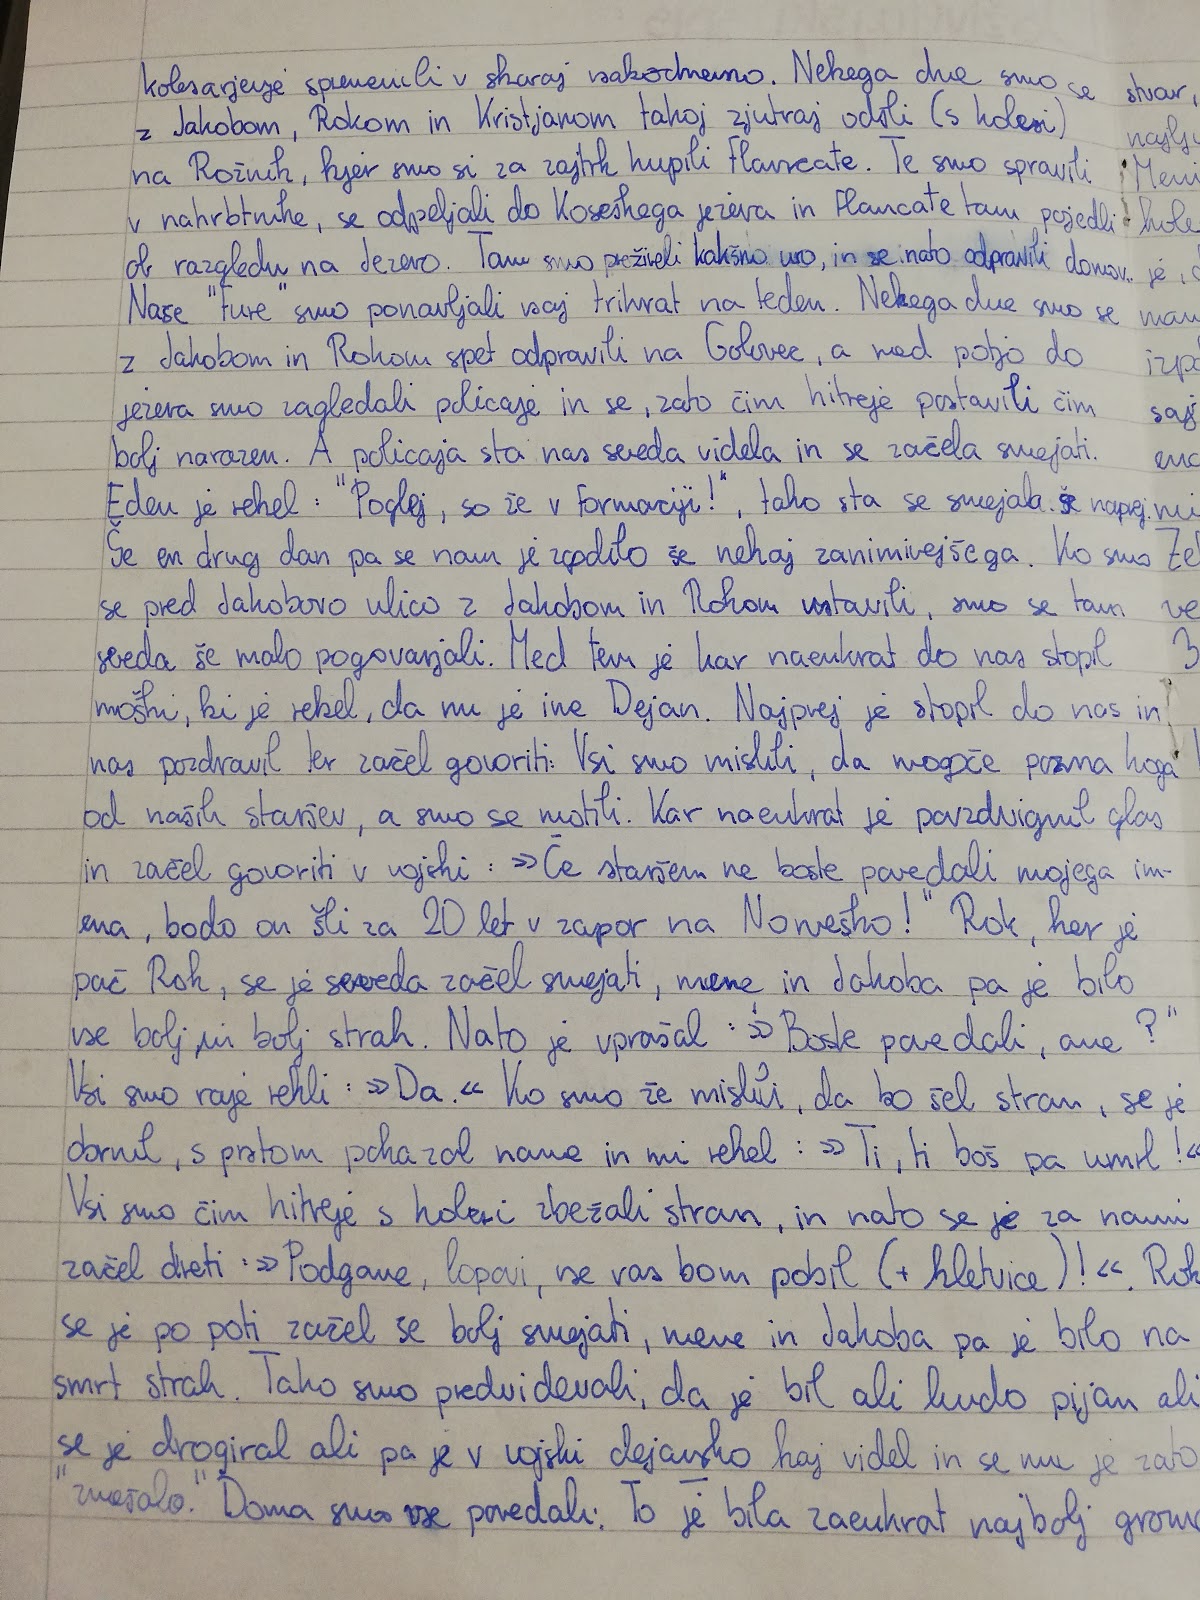 kolesarjenje spremenili v skoraj vsakodnevno. Nekega dne smo se
z Jakobom, Rokom in Kristjanom takoj zjutraj odšli (s kolesi)
na Rožnik, kjer smo si za zajtrk kupili flancate. Te smo spravili
v nahrbtnike, se odpeljali do Koseškega jezera in flancate tam pojedli
ob razgledu na jezero. Tam smo preživeli kakšno uro, in se nato odpravili domov.
Naše "ture" smo ponavljali vsaj trikrat na teden. Nekega dne smo se
z Jakobom in Rokom spet odpravili na Golovec, a med potjo do
jezera smo zagledali policaje in se, zato čim hitreje postavili čim
bolj narazen. A policaja sta nas seveda videla in se začela smejati.
Eden je rekel: "Poglej, so že v formaciji!", tako sta se smejala še naprej.
Še en drug dan pa se nam je zgodilo še nekaj zanimivejšega. Ko smo
se pred Jakobovo ulico z Jakobom in Rokom ustavili, smo se tam
seveda še malo pogovarjali. Med tem je kar naenkrat do nas stopil
moški, ki je rekel, da mu je ime Dejan. Najprej je stopil do nas in
nas pozdravil ter začel govoriti: Vsi smo mislili, da mogoče pozna koga
od naših staršev, a smo se motili. Kar naenkrat je povzdignil glas
in začel govoriti v vojski: »Če staršem ne boste povedali mojega im-
ena, bodo oni šli za 20 let v zapor na Norveško!" Rok, ker je
pač Rok, se je seveda začel smejati, mene in Jakoba pa je bilo
vse bolj in bolj strah. Nato je vprašal: »Boste povedali, ane?"
Vsi smo raje rekli: »Da.« Ko smo že mislili, da bo šel stran, se je
obrnil, s prstom pokazal name in mi rekel: »Ti, ti boš pa umrl!«
Vsi smo čim hitreje s kolesi zbežali stran, in nato se je za nami
začel dreti: »Podgane, lopovi, vse vas bom pobil (+ kletvice)!«. Rok
se je po poti začel še bolj smejati, mene in Jakoba pa je bilo na
smrt strah. Tako smo predvidevali, da je bil ali hudo pijan ali
se je drogiral ali pa je v vojski dejansko kaj videl in se mu je zato
"zmešalo." Doma smo vse povedali. To je bila zaenkrat najbolj